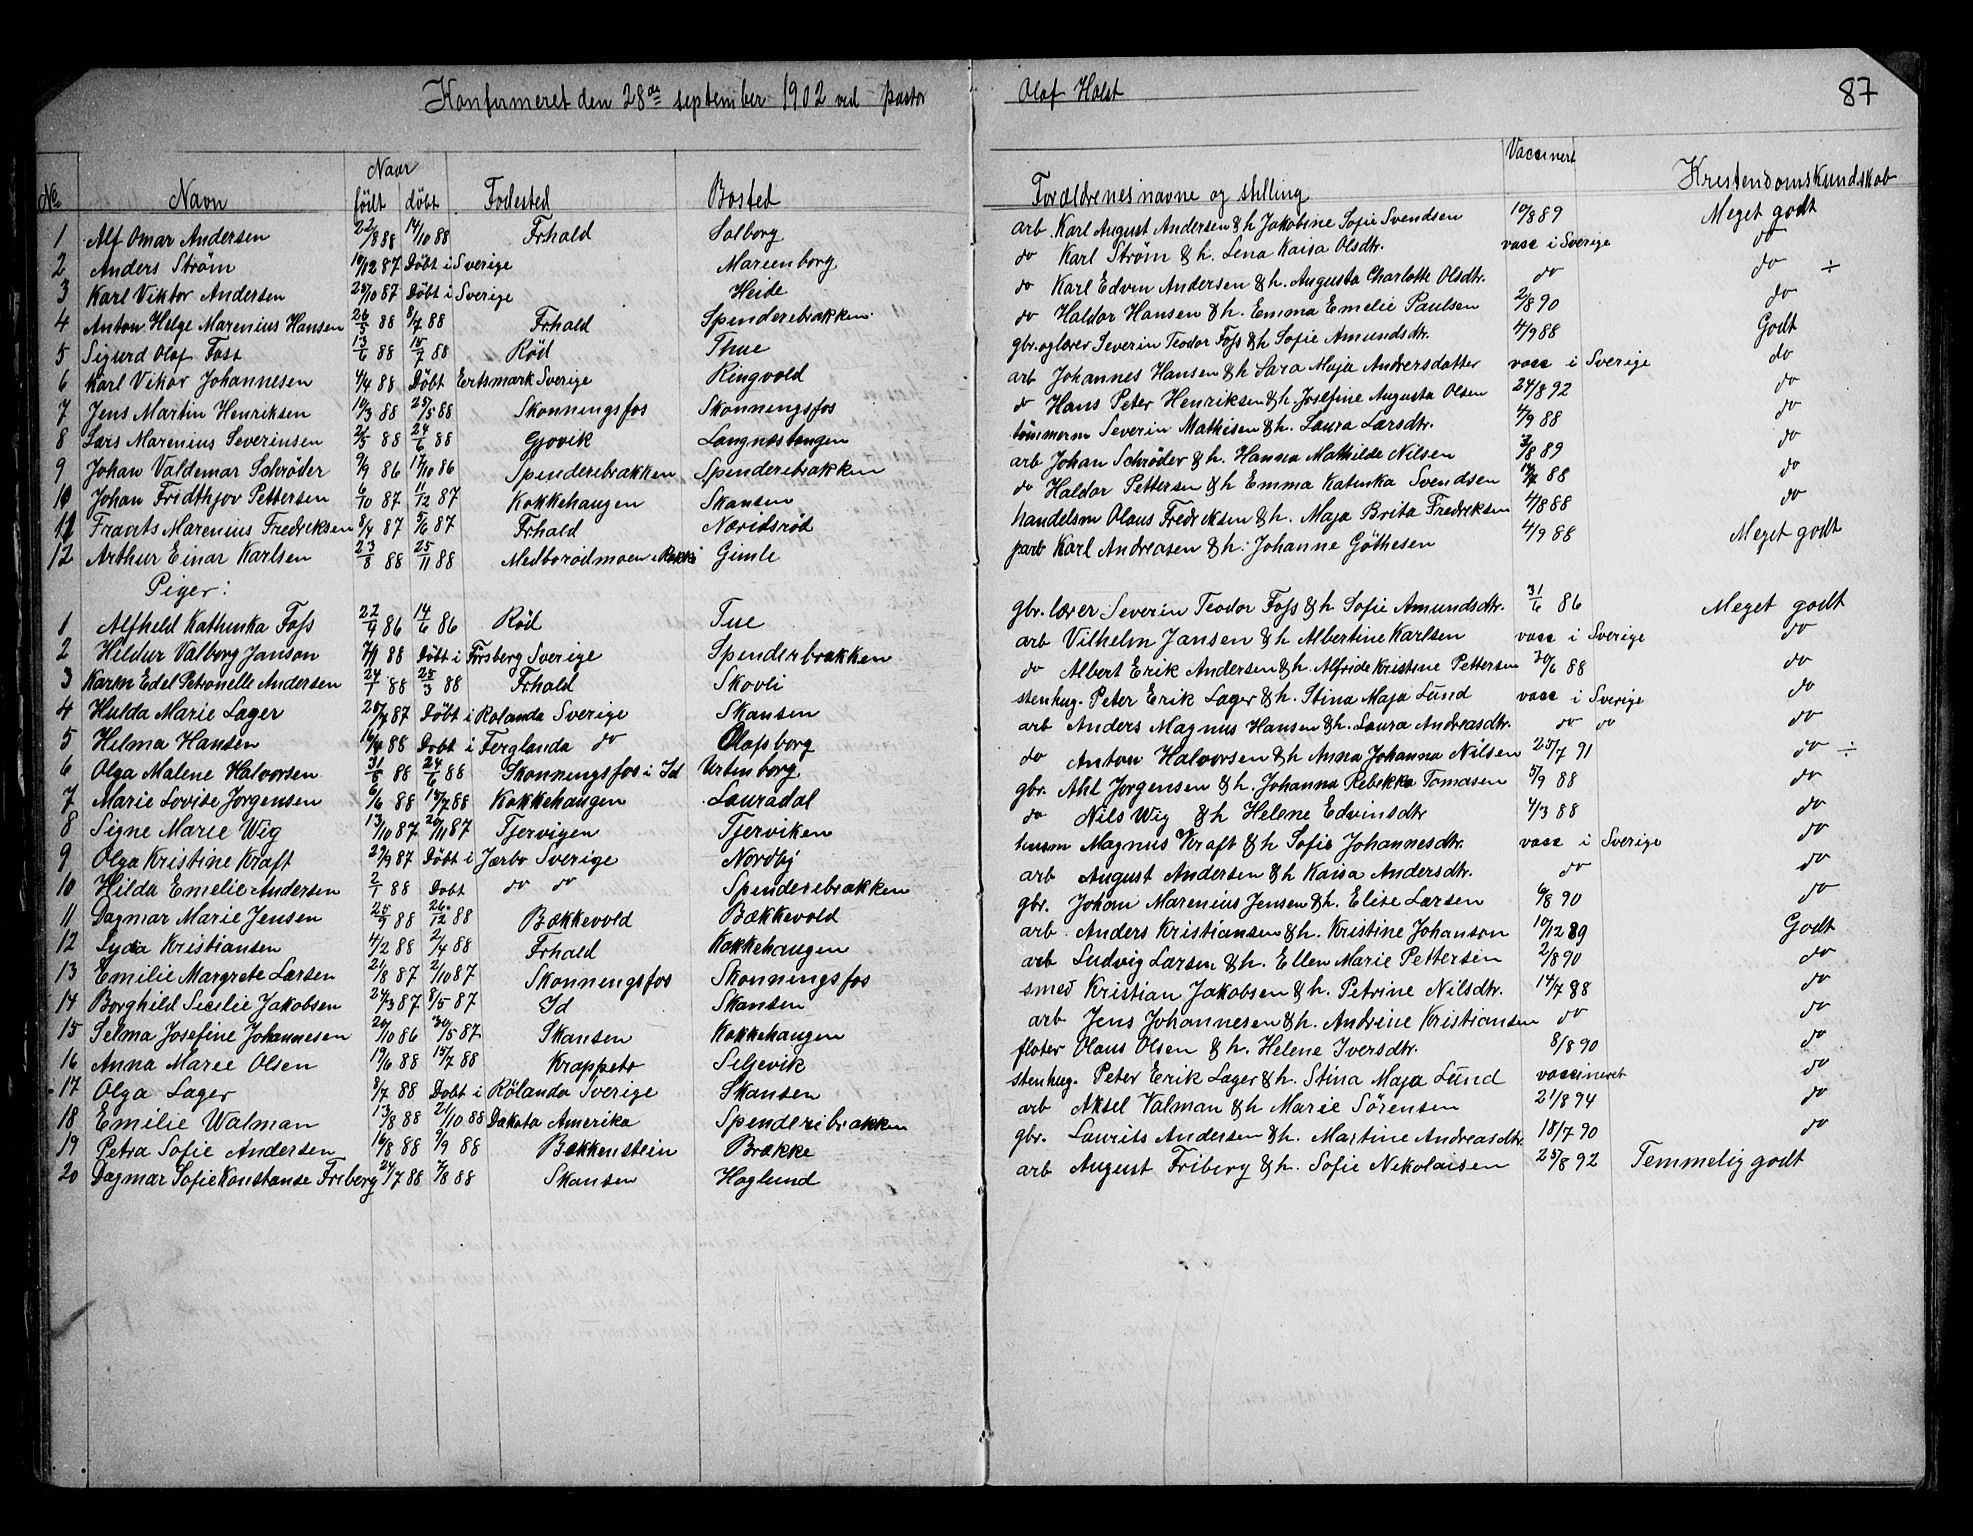 Konfirmeret den 28de september 1902 ved pastor Olaf Holst 87
No. Navn Naar født døbt Fødested Bosted Forældrenes navne og stilling Vaccinert Kristendomskundskab
1 Alf Omar Andersen 22/8 88 14/10 88 Frhald Solborg arb. Karl August Andersen & h Jakobine Sofie Svendsen 10/8 89 Meget godt
2 Anders Strøm 10/12 87 Døbt i Sverige Marienborg do Karl Strøm & h. Lena Kaisa Olsdtr. vacc i Sverige do
3 Karl Viktor Andersen 25/10 87 Døbt i Sverige Heide do Karl Edvin Andersen & h. Augusta Charlotte Olsdtr. do do ÷
4 Anton Helge Marenius Hansen 26/5 88 8/7 88 Frhald Spenderebrakken. do Haldor Hansen & h. Emma Emelie Paulsen 2/8 90 do
5 Sigurd Olaf Foss 13/6 88 15/7 88 Rød Thue gbr. og lærer Severin Teodor Foss & h Sofie Amundsdtr. 4/9 88 Godt
6 Karl Vikor Johannesen 4/4 88 Døbt Ertsmark Sverige Ringvold arb Johannes Hansen & h Sara Maja Andersdatter vacc i Sverige do
7 Jens Martin Henriksen 10/3 88 25/5 88 Skonningsfos Skonningsfos do Hans Peter Henriksen & h. Josefine Augusta Olsen 24/8 92 do
8 Lars Marenius Severinsen 21/5 88 24/6 88 Gjovik Langnæstangen tømmerm Severin Mathisen & h. Laura Larsdtr. 4/9 88 do
9 Johan Valdemar Schrøder 9/9 86 17/10 86 Spenderebrakken Spenderebrakken arb Johan Schrøder & h. Hanna Mathilde Nilsen 3/8 89 do
10 Johan Fridthjov Pettersen 6/10 87 11/12 87 Kokkehaugen Skansen do Haldor Pettersen & h Emma Katinka Svendsen 88 do
11 Frants Marenius Fredriksen 8/4 87 5/6 87 Frhald Næridsrød handelsm Olaus Fredriksen & h. Maja Brita Fredriksen 4/8 88 do
12 Arthur Einar Karlsen 23/8 88 25/11 88 Medbørødmoen i Rokke Gimle parb Karl Andreasen & h. Johanne Gøthesen 4/9 88 Meget godt
Piger:
1 Alfheld Kathinka Foss 22/4 86 14/6 86 Rød Tue gbr. lærer Severin Teodor Foss & h Sofie Amundsdtr. 31/6 86 Meget godt
2 Hildur Valborg Janson 7/1 88 Døbt i Førsberg Sverige Spenderbrakken arb Vilhelm Jansen & h Albertine Karlsen vacc i Sverige do
3 Karen Edel Petronelle Andersen 24/1 88 25/3 88 Frhald Skovli do Albert Erik Andersen & h. Alfride Kristine Pettersen 30/6 88 do
4 Hulda Marie Lager 25/7 87 Døbt i Rolanda Sverige Skansen stenhug. Peter Erik Lager & h. Stina Maja Lund vacc i Sverige do
5 Hilma Hansen 16/4 88 Døbt i Ferglanda do Olafsborg arb Anders Magnus Hansen & h. Laura Andreasdtr. do do do
6 Olga Malene Halvorsen 31/5 88 24/6 88 Skonningsfos i Id Urtenborg do Anton Halvorsen & h Anna Johanna Nilsen 25/7 91 do ÷
7 Marie Lovise Jorgensen 6/6 88 15/7 88 Kokkehaugen Lauradal gbr. Ahl Jorgensen & h. Johanna Rebekka Tomasen 5/9 88 do
8 Signe Marie Wig 13/10 87 20/11 87 Tjervigen Tjerviken do Nils Wig & h Helene Edvinsdtr 4/3 88 do
9 Olga Kristine Kraft 29/9 87 Døbt i Jærbo Sverige Nordby husm Magnus Kraft & h Sofie Johannesdtr. vacc i Sverige do
10 Hilda Emelie Andersen 2/1 88 Døbt do do Spenderebrakken arb August Andersen & h Kaisa Andersdtr. do do
11 Dagmar Marie Jensen 25/9 88 26./12 88 Bækkevold Bækkevold gbr. Johan Marenius Jensen & h. Elise Larsen 6/8 90 do
12 Lyda Kristiansen 4/2 88 2/4 88 Frhald Kokkehaugen arb. Anders Kristiansen & h. Kristine Johanson 10/12 89 Godt
13 Emilie Margrete Larsen 21/8 87 2/10 87 Skonningsfos Skonningsfos arb Ludvig Larsen & h. Ellen Marie Pettersen 2/8 90 do
14 Borghild Sicilie Jakobsen 24/3 87 8/5 87 Id Skansen smed Kristian Jakobsen & h. Petrine Nilsdtr. 14/7 88 do
15 Selma Josefine Johannesen 20/10 86 30/5 87. Skansen Kokkehaugen arb Jens Johannesen & h. Andrine Kristiansen do do
16 Anna Marie Olsen 19/6 88 15/7 88 Krappeto Seljevik fløter Olaus Olsen & h. Helene Iversdtr. 8/8 90 do
17 Olga Lager 8/7 88 Døbt i Rølanda Sverige Skansen stenhug. Peter Erik Lager & h. Stina Maja Lund vaccineret do
18 Emilie Walman 13/8 88 21/10 88 Dakota Amerika Spenderibrakken arb Aksel Valman & h Marie Sørensen 21/8 94 do
19 Petra Sofie Andersen 16/8 88 9/9 88 Bækkenstein Brække gbr. Laurits Andersen & h. Martine Andreasdtr. 18/7 90 do
20 Dagmar Sofie Konstanse Friberg 24/7 88 7/8 88 Skansen Hoglund arb August Friberg & h. Sofie Nekolaisen 25/8 92 Temmelig godt